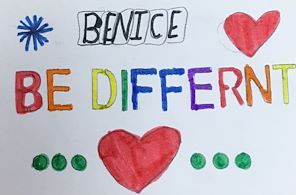 BENICE
BE DIFFERNT